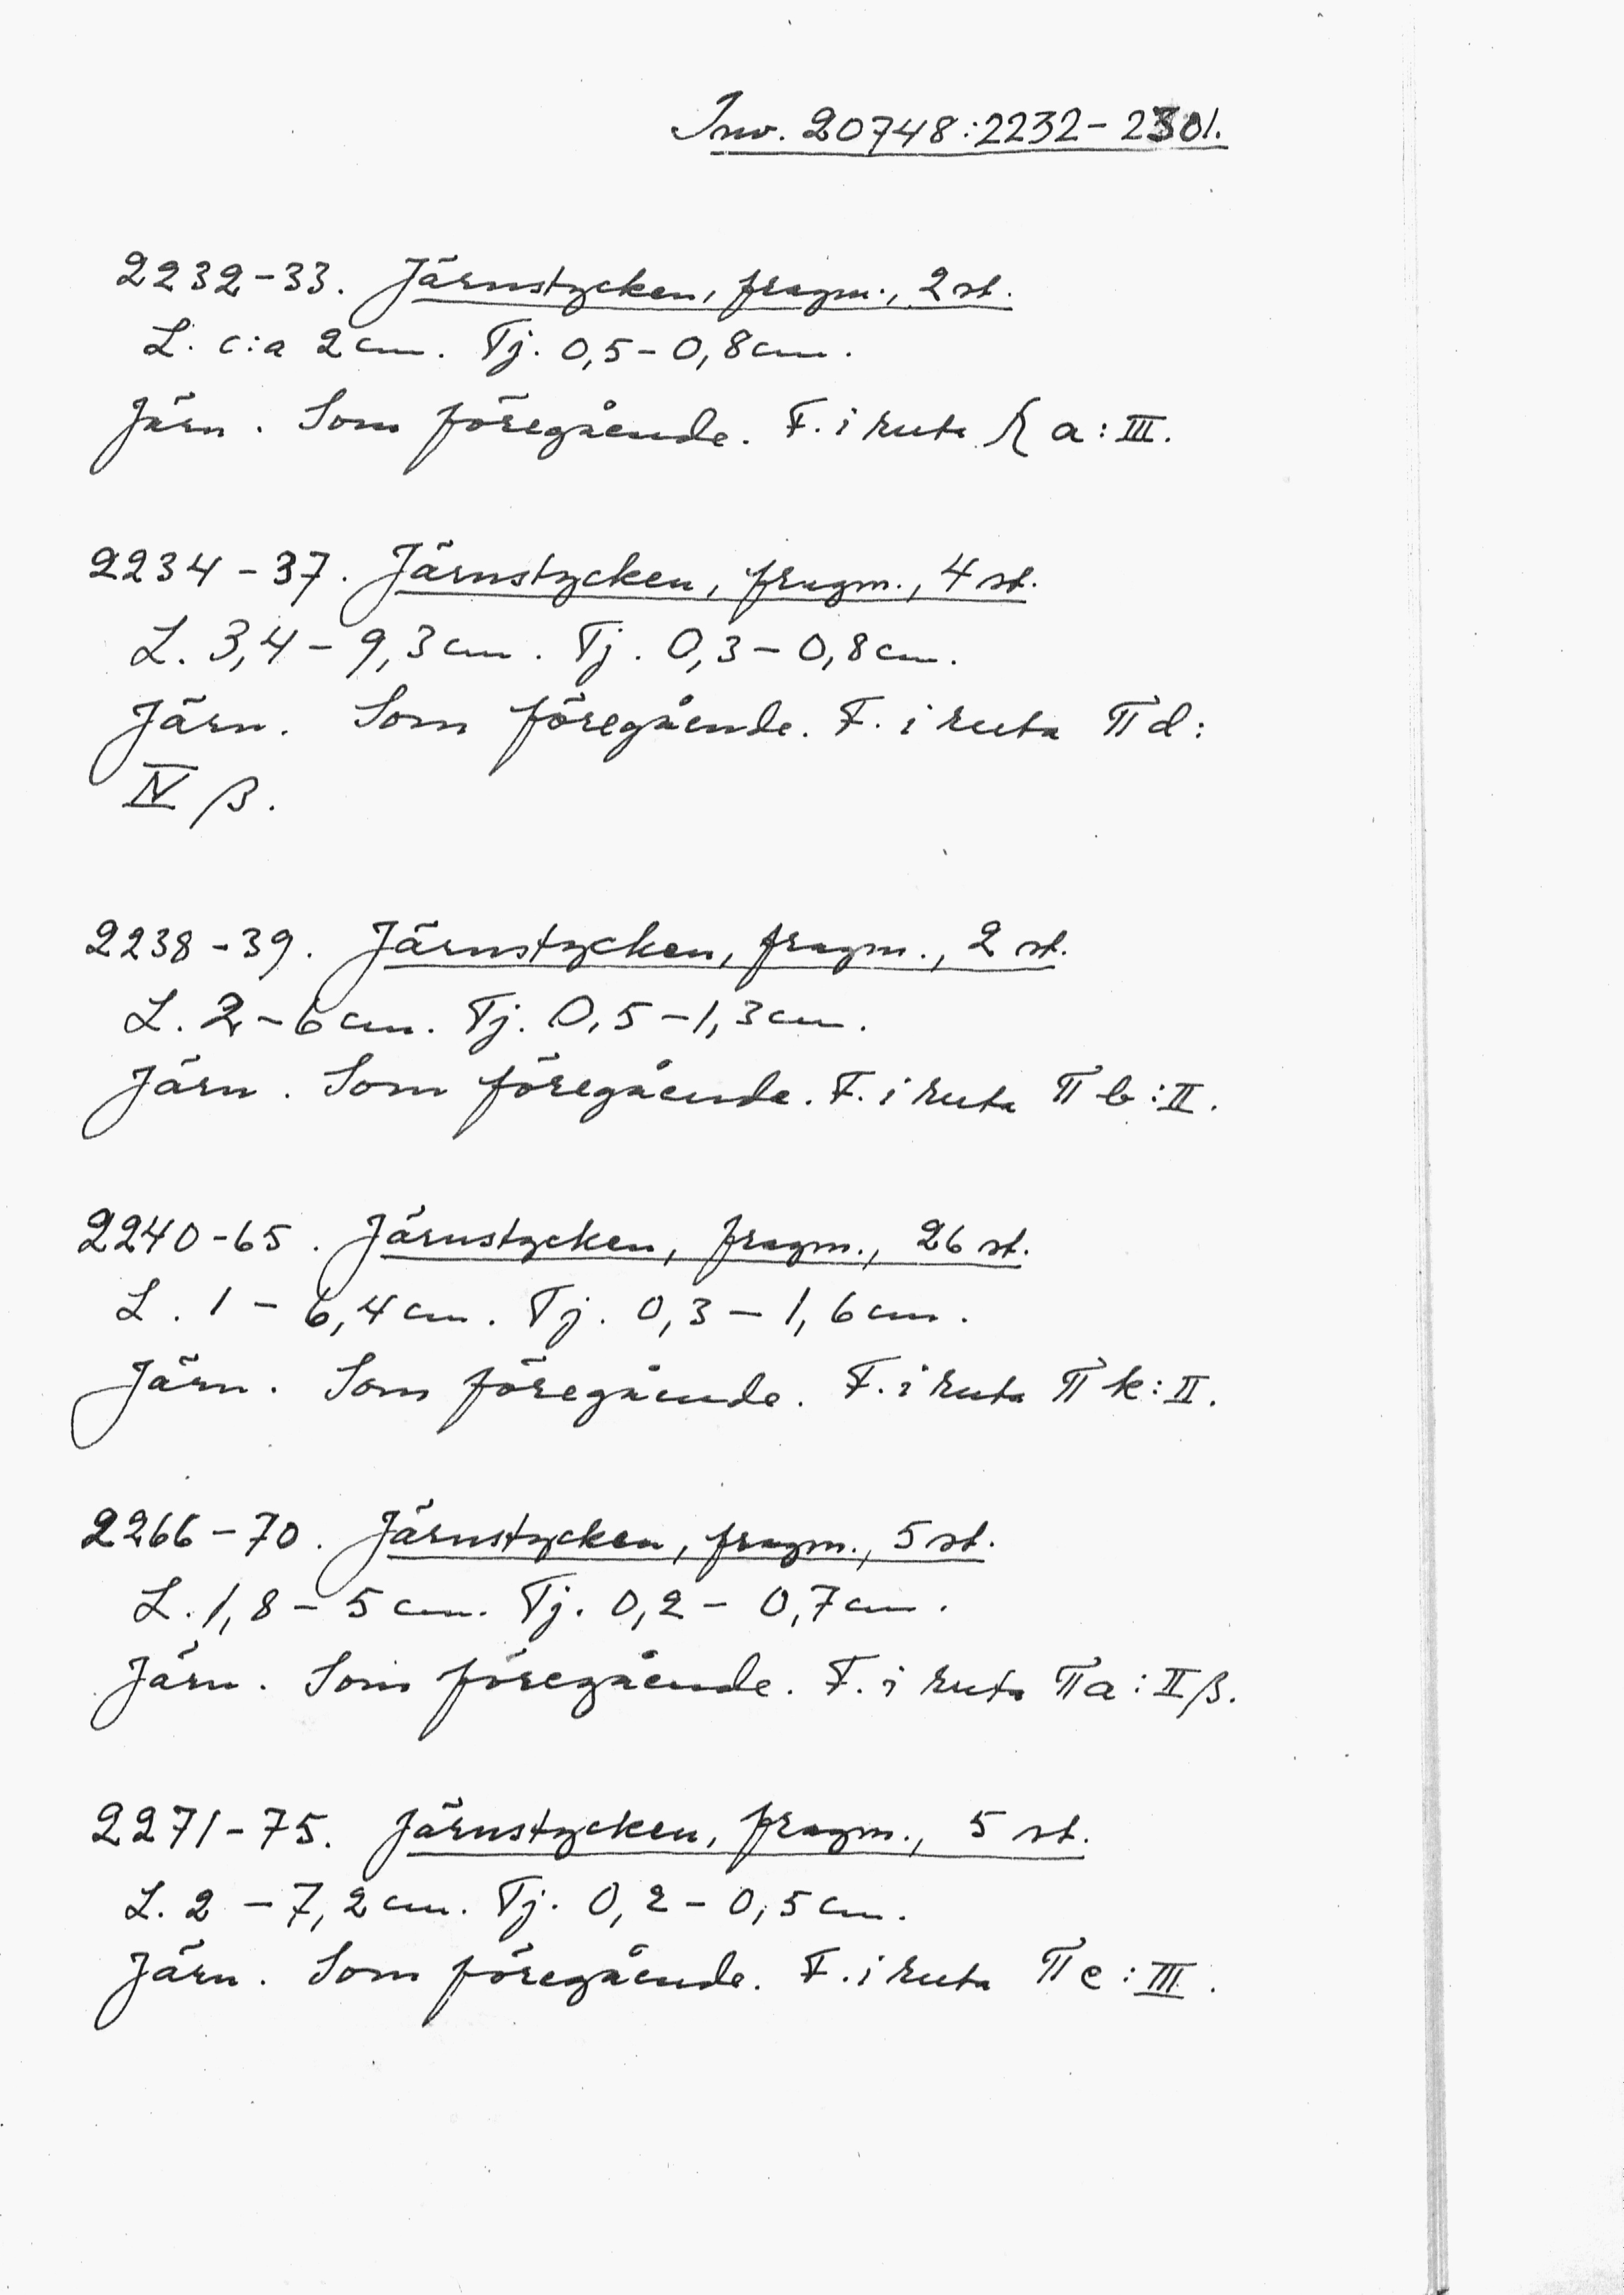 Inv. 20748:2232-2301.
2232-33. Järnstycken, fragm., 2 st.
L. c:a 2 cm. Tj. 0,5-0,8 cm.
Järn. Som föregående. F. i ruta a: III.
2234-37. Järnstycken, fragm., 4 st.
L. 3,4-9,3 cm. Tj. 0,3-0,8 cm.
Järn. Som föregående. F. i ruta π d:
IV β.
2238-39. Järnstycken, fragm., 2 st.
L. 2-6 cm. Tj. 0,5-1,3 cm.
Järn. Som föregående. F. i ruta π b: II.
2240-65. Järnstycken, fragm., 26 st.
L. 1-6,4 cm. Tj. 0,3-1,6 cm.
Järn. Som föregående. F. i ruta π k: II.
2266-70. Järnstycken, fragm., 5 st.
L. 1,8-5 cm. Tj. 0,2-0,7 cm.
Järn. Som föregående. F. i ruta π a: II β.
2271-75. Järnstycken, fragm., 5 st.
L. 2-7,2 cm. Tj. 0,2-0,5 cm.
Järn. Som föregående. F. i ruta π e: III.